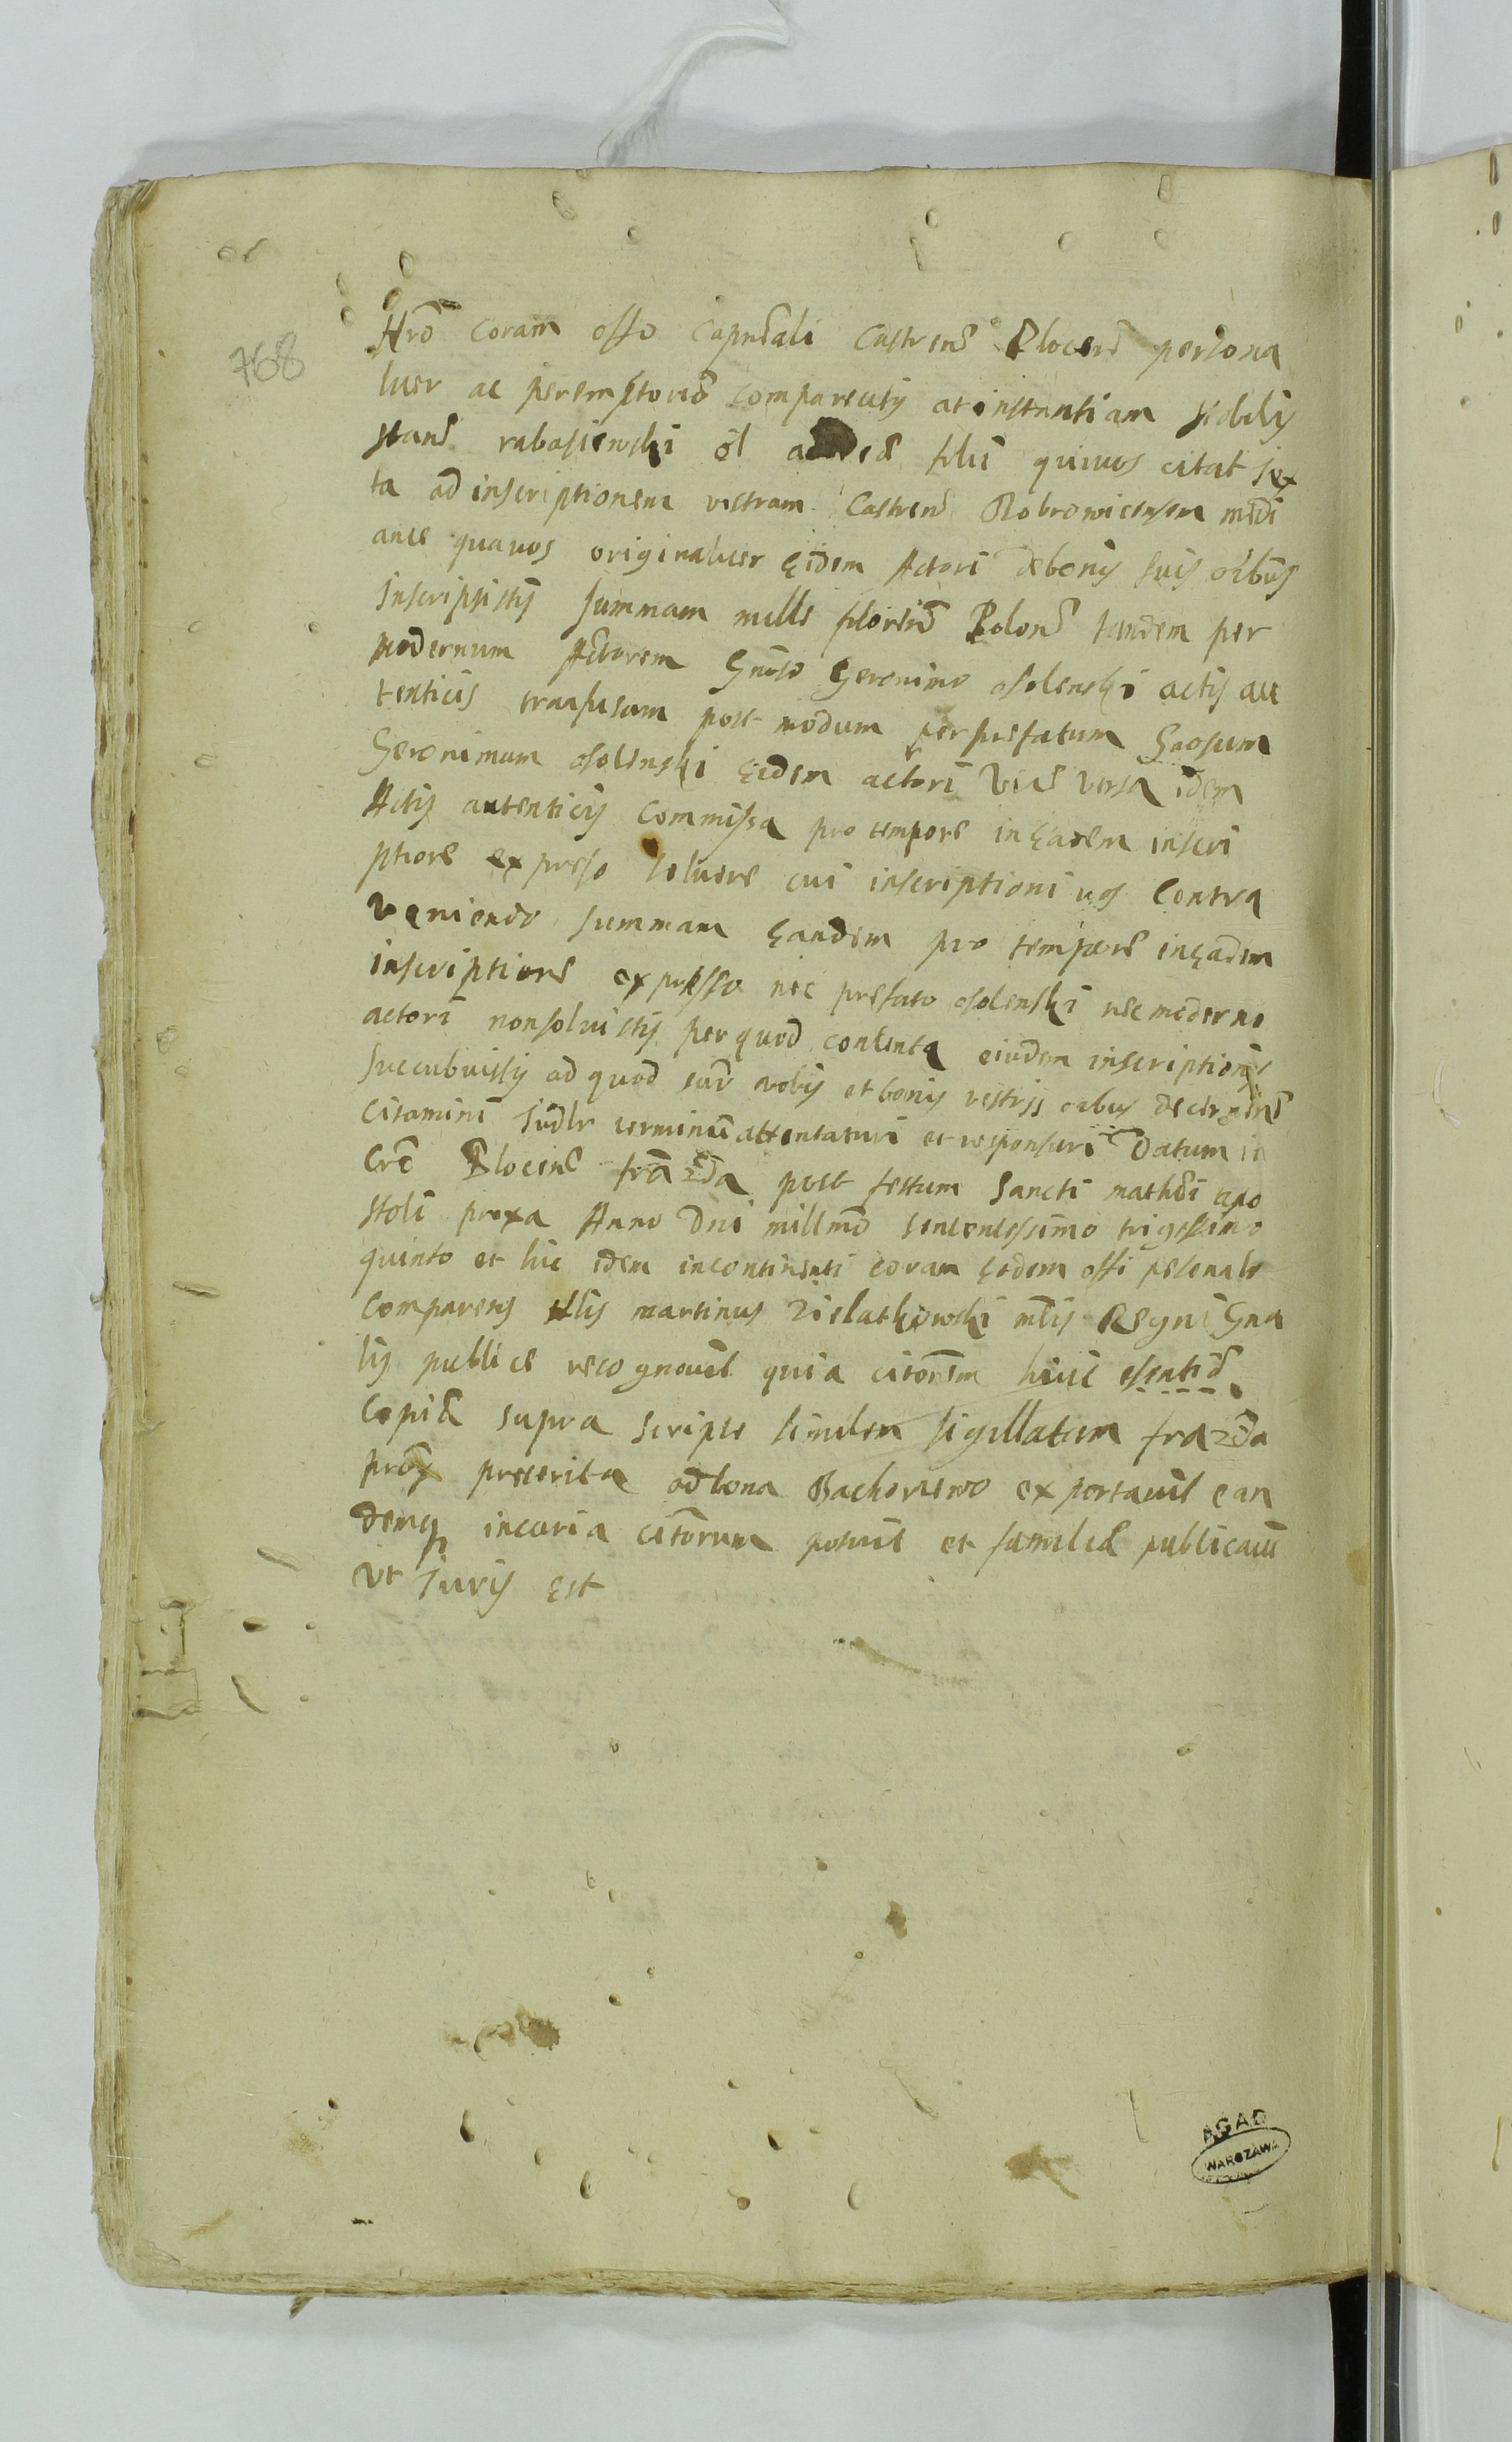 768
Nro coram offo Capneali Castren Plocen persona
liter ac peremptorie compareatis at instantiam Nobilis
stani rabasiewski ol filii quiuos citat jux
ta ad inscriptionem vestram Castren Bobrowicensem medi
ante quauos originaliter Eidem Actori debonis suis oibus
inscripsistis summam mille floren Polon tandem per
modernum Actorem Gnoso Geronimo osolenski actis au
tenticis tranfusam post modum perprefatum Gnosum
Geronimum osolenski Eidem actori vice versa idem
Actis autenticis commissa pro tempore in Eadem inscri
ptione expresso soluere cui inscriptioni uos Contra
veniendo summam Eandem pro tempore in Eadem
inscriptione expresso nec prefato osolenski nec moderno
actori nonsoluistis per quod contenta eiusdem inscriptionis
succubuistis ad quod eund vobis et bonis vestris oibus decernend
Citamini Judlr terminu attentaturi et responsuri Datum in
Cro Plocen fra 2da post festum Sancti mathei apo
stoli proxa Anno Dni millmo sexcentessimo trigessimo
quinto et hic idem incontinenti coram Eodem offi personalr
Comparens Nlis martinus Zielathkowski mlis Regni Gna
lis publice recognouit quia citonem huic
Copie supra scripte similem sigillatam fra 2da
prox preterita ad bona Bachorzewo exportauit ean
demq incuria citorum posuit et familie publicauit
vt Juris Est
AGAD
WARSZAWA